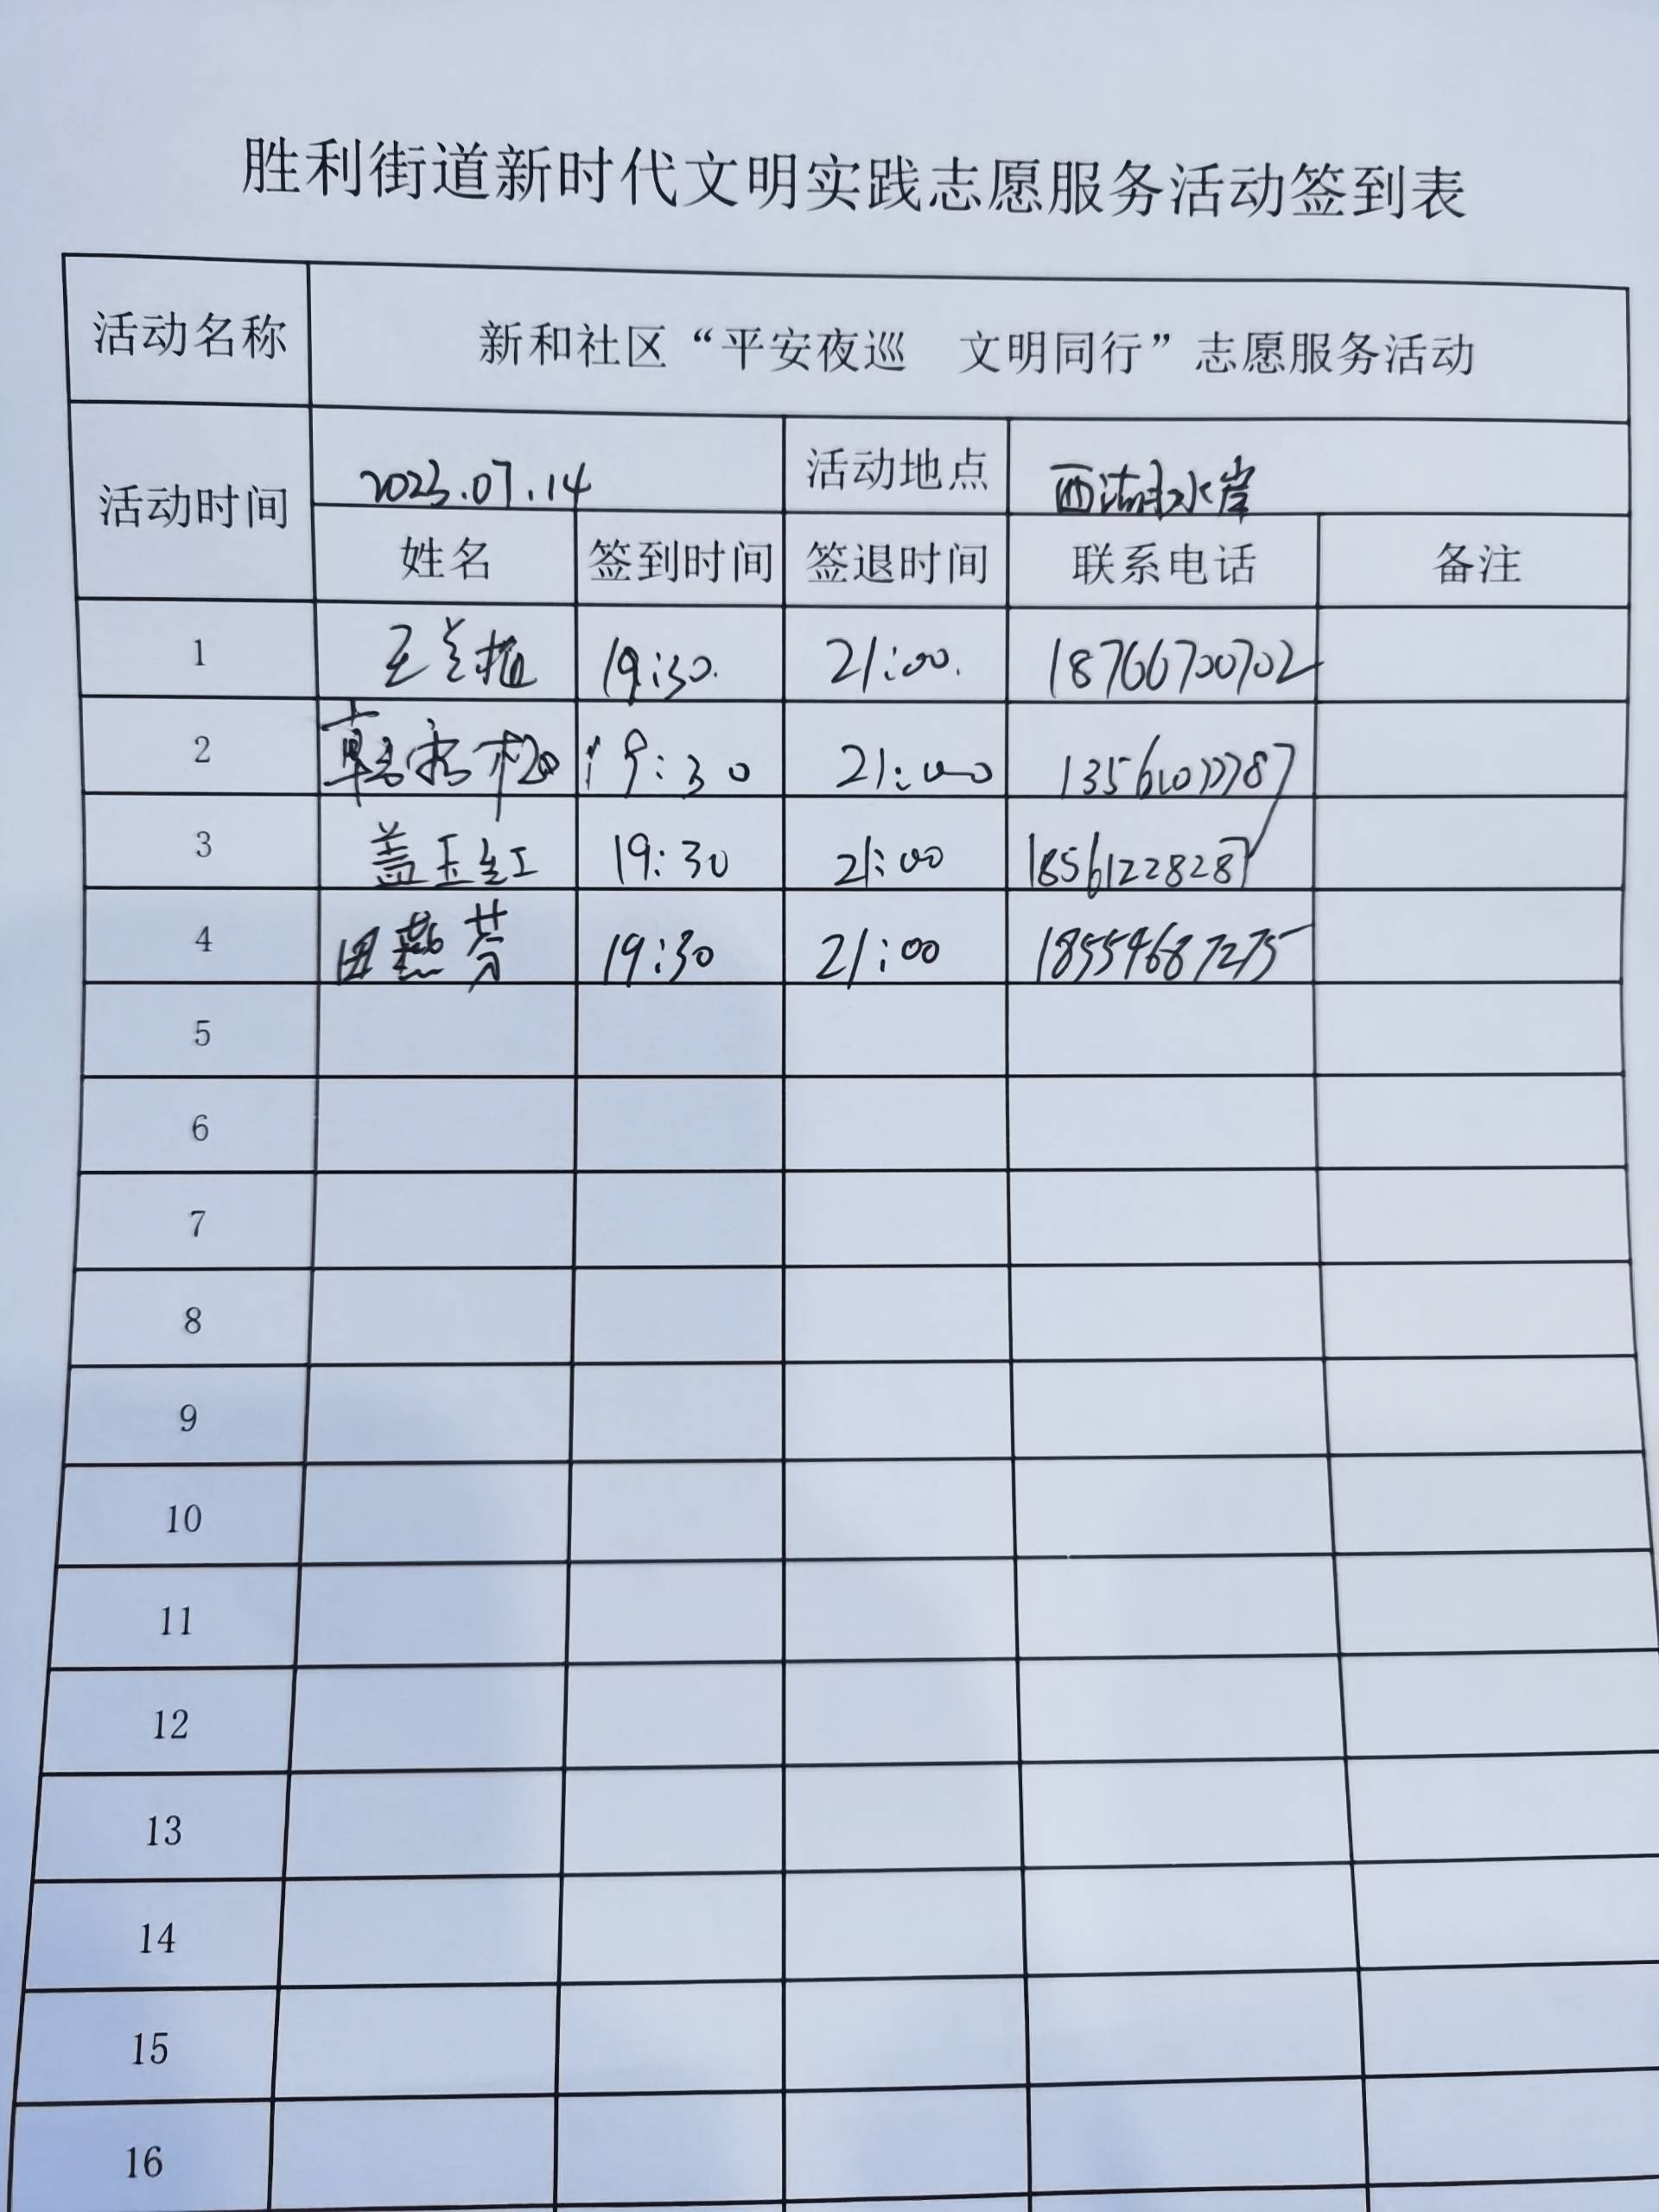 胜利街道新时代文明实践志愿服务活动签到表
活动名称 新和社区“平安夜巡 文明同行”志愿服务活动
活动时间 2023.07.14 活动地点 西湖水岸
姓名 签到时间 签退时间 联系电话 备注
1 19:30. 21:00. 18766700702
2 19:30 21:00
3 盖玉红 19:30 21:00 18561228287
4 田燕芬 19:30 21:00 18554687275
5
6
7
8
9
10
11
12
13
14
15
16